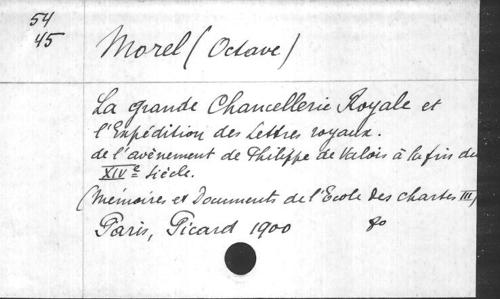 54
45
Morel (Octave)
La grande Chancellerie Royale et
l'Expédition des Lettres royaux.
de l'avènement de Philippe de Valois à la fin du
XIVe Siècle.
(Mémoires et Documents de l'Ecole des Chartes III)
Paris, Picard 1900 8o